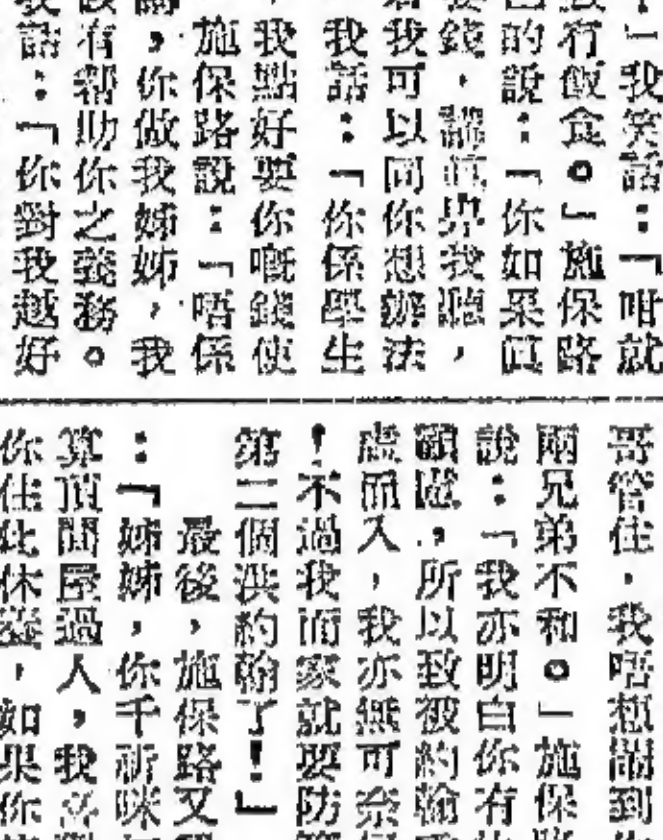 」我笑話：「咁就
有飯食。」施保路
的說：「你如果眞
錢，講眞畀我聽，
我可以同你想辦法
我話：「你係學生
我點好要你嘅錢使
施保路說：「唔係
，你做我姊姊，我
有幫助你之義務。
話：「你對我越好
哥管住，我唔想鬧到
兩兄弟不和。」施保
說：「我亦明白你有
顧慮，所以致被約翰
虛而入，我亦無可奈
！不過我而家就要防
第二個洪約翰了！」
最後，施保路又
：「姊姊，你千祈咪
算頂間屋過人，我
你住此休養，如果你